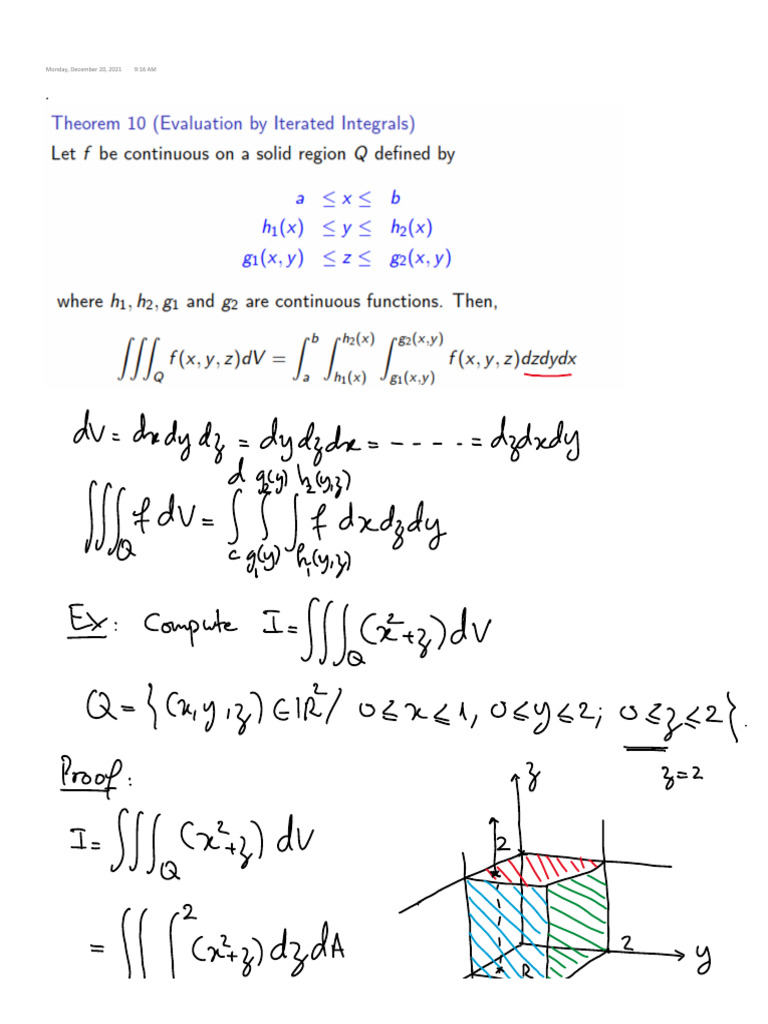 Monday, December 20, 2021 9:16 AM
Theorem 10 (Evaluation by Iterated Integrals)
Let f be continuous on a solid region Q defined by
a ≤ x ≤ b
h₁(x) ≤ y ≤ h₂(x)
g₁(x, y) ≤ z ≤ g₂(x, y)
where h₁, h₂, g₁ and g₂ are continuous functions. Then,
∭_Q f(x, y, z)dV = ∫_a^b ∫_{h₁(x)}^{h₂(x)} ∫_{g₁(x,y)}^{g₂(x,y)} f(x, y, z)dzdydx
dV = dx dy dz = dy dz dx = - - - - - = dz dx dy
∭_Q f dV = ∫_c^d ∫_{g₁(y)}^{g₂(y)} ∫_{h₁(y,z)}^{h₂(y,z)} f dx dz dy
Ex: Compute I = ∭_Q (x²+z) dV
Q = {(x, y, z) ∈ ℝ² / 0 ≤ x ≤ 1, 0 ≤ y ≤ 2; 0 ≤ z ≤ 2}.
z = 2
Proof:
z
I = ∭_Q (x²+z) dV
2
= ∬ ∫^2 (x²+z) dz dA
2
y
R